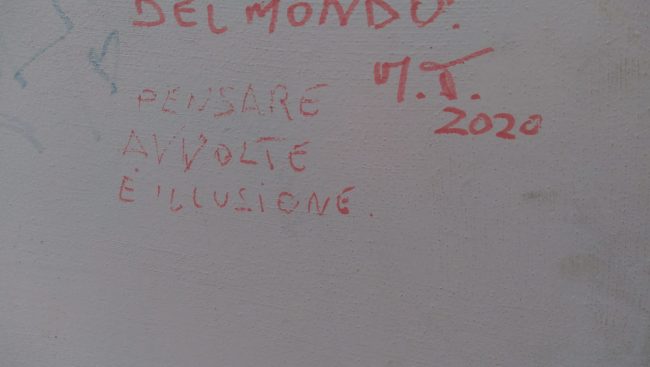 DEL MONDO.
M.T.
2020
PENSARE
AVVOLTE
È ILLUSIONE.